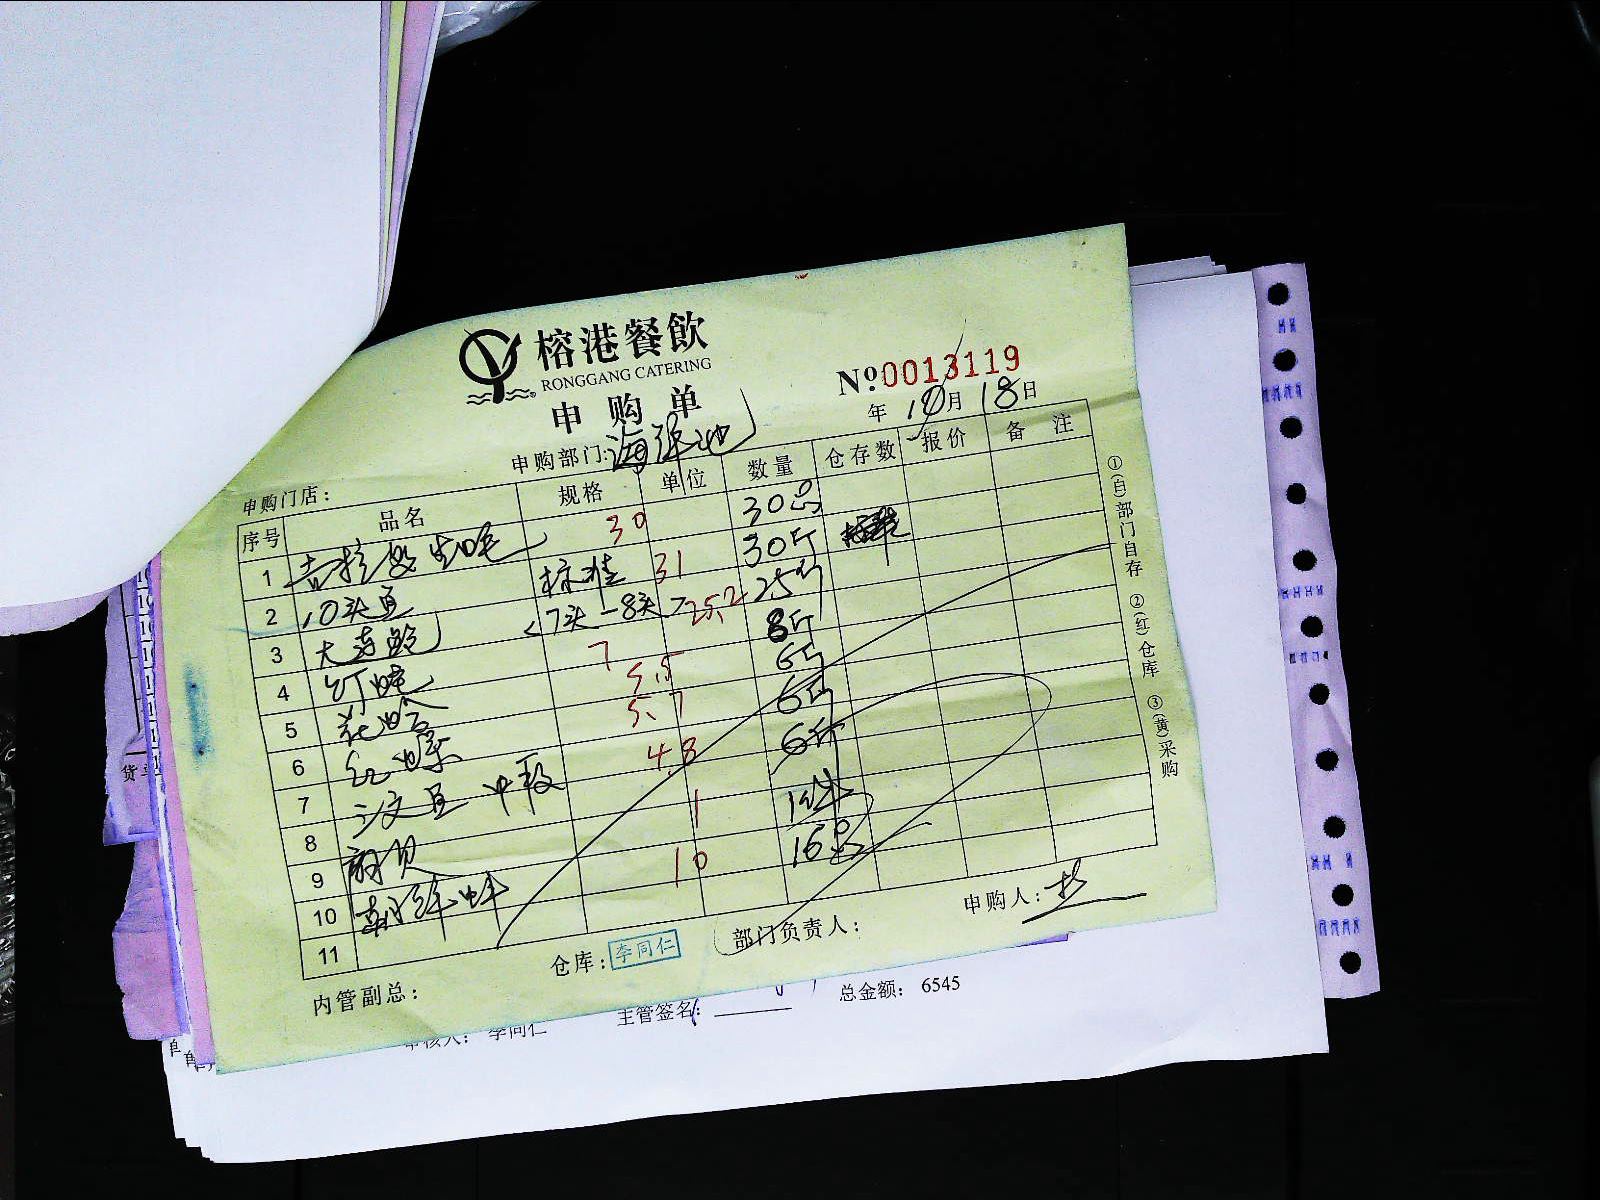 榕港餐飲
RONGGANG CATERING
申购单
№0013119
年 10月 18日
申购部门:海鲜池
申购门店:
序号 品名 规格 单位 数量 仓存数 报价 备注
1 吉拉多生蚝 30 30只
2 10头 标准 31 30斤
3 大 <7头-8头> 25.2 25斤
4 7 8斤
5 花哈 5.5 6斤
6 红螺 5.7 6斤
7 中段 4.8 6斤
8 1 1件
9 贝 10 16只
10 蚌
11
内管副总: 仓库: 李同仁 部门负责人: 申购人:
①(白)部门自存 ②(红)仓库 ③(黄)采购
审核人: 李同仁 主管签名: 总金额: 6545